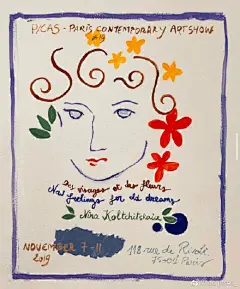 PICAS - PARIS CONTEMPORARY ART SHOW
2019
Des visages et des fleurs
New feelings for old dreams
Nina Koltchitskaia
NOVEMBER 7-11
2019
118 rue de Rivoli
75001 Paris